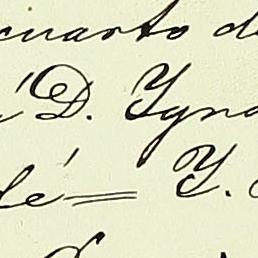 cuarto de
D. Ygna
lé= Y.